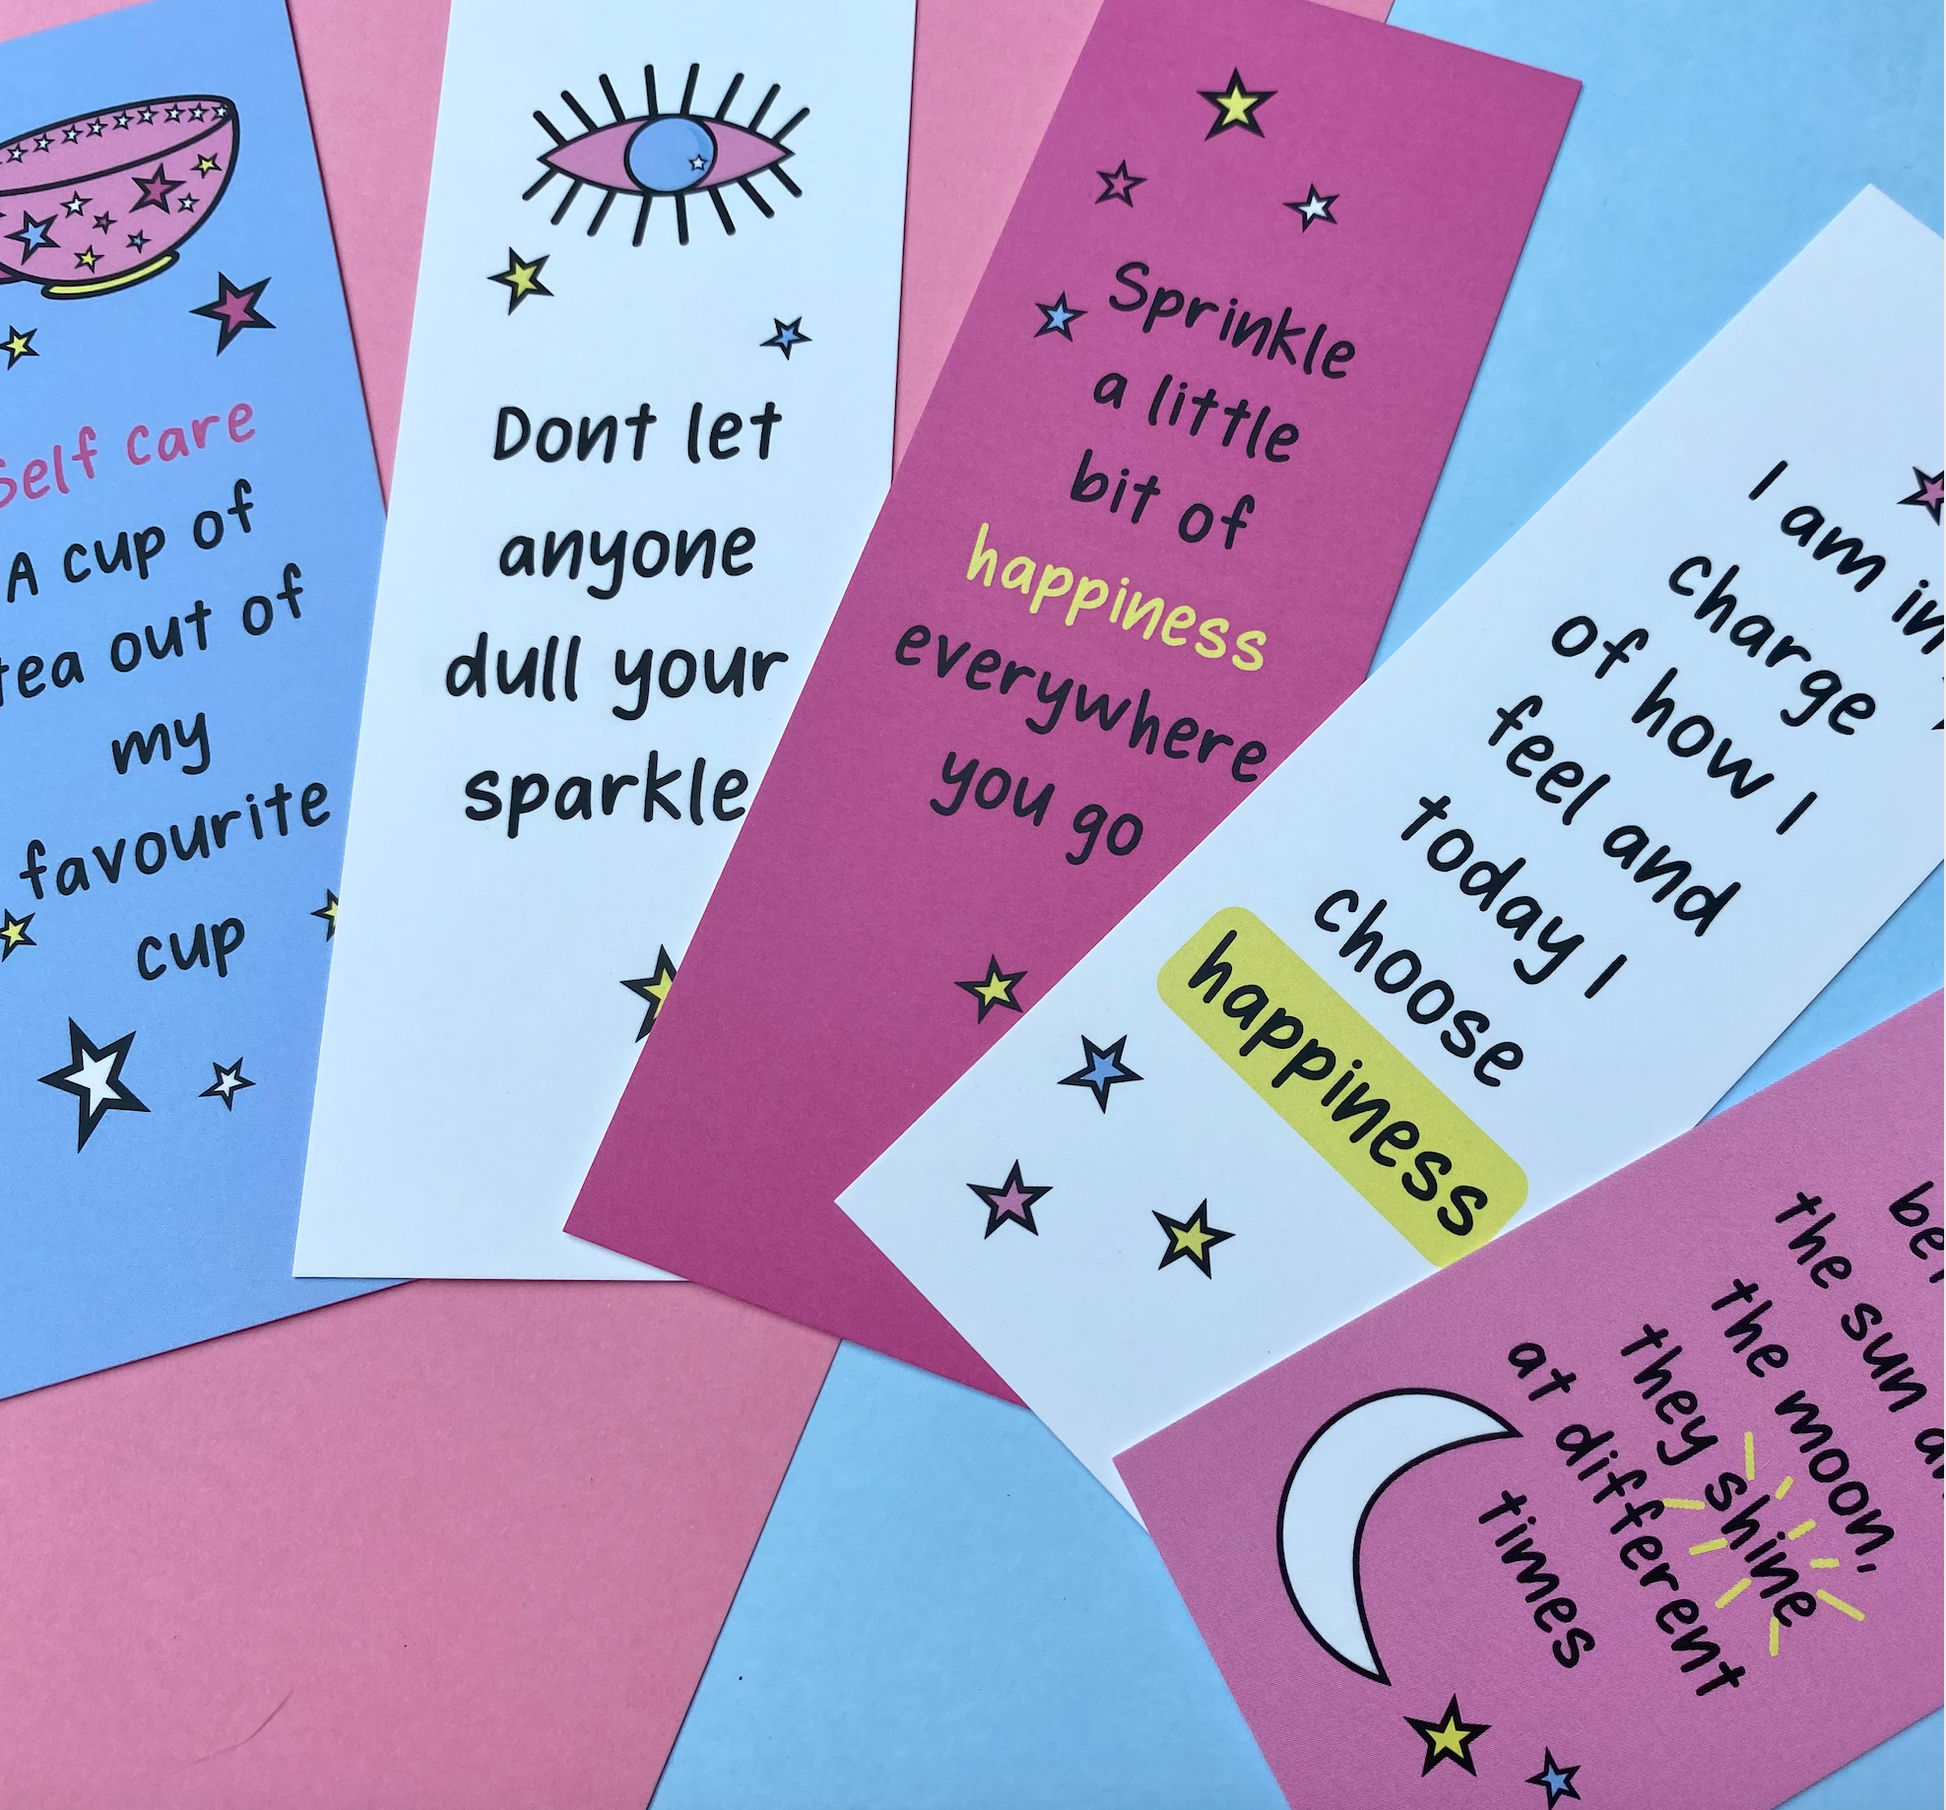 Self care
A cup of
tea out of
my
favourite
cup
Dont let
anyone
dull your
sparkle
Sprinkle
a little
bit of
happiness
everywhere
you go
I am in
charge
of how I
feel and
today I
choose
happiness
the sun
the moon,
they shine
at different
times